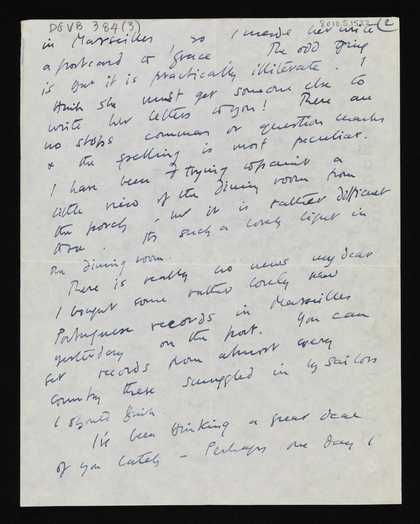 DGVB 384(3)
8010.5.1532 (2
in Marseilles so I made her write
a postcard to Grace. The odd thing
is that it is practically illiterate! I
think she must get someone else to
write her letters to you! There are
no stops commas or question marks
& the spelling is most peculiar.
I have been trying to paint a
little view of the dining room from
the porch, but it is rather difficult
to do. Its such a lovely light in
the dining room.
There is really no news my dear
I bought some rather lovely new
Portuguese records in Marseilles
yesterday on the port. You can
get records from almost every
country there smuggled in by sailors
I should think
I've been thinking a great deal
of you lately – Perhaps one day I